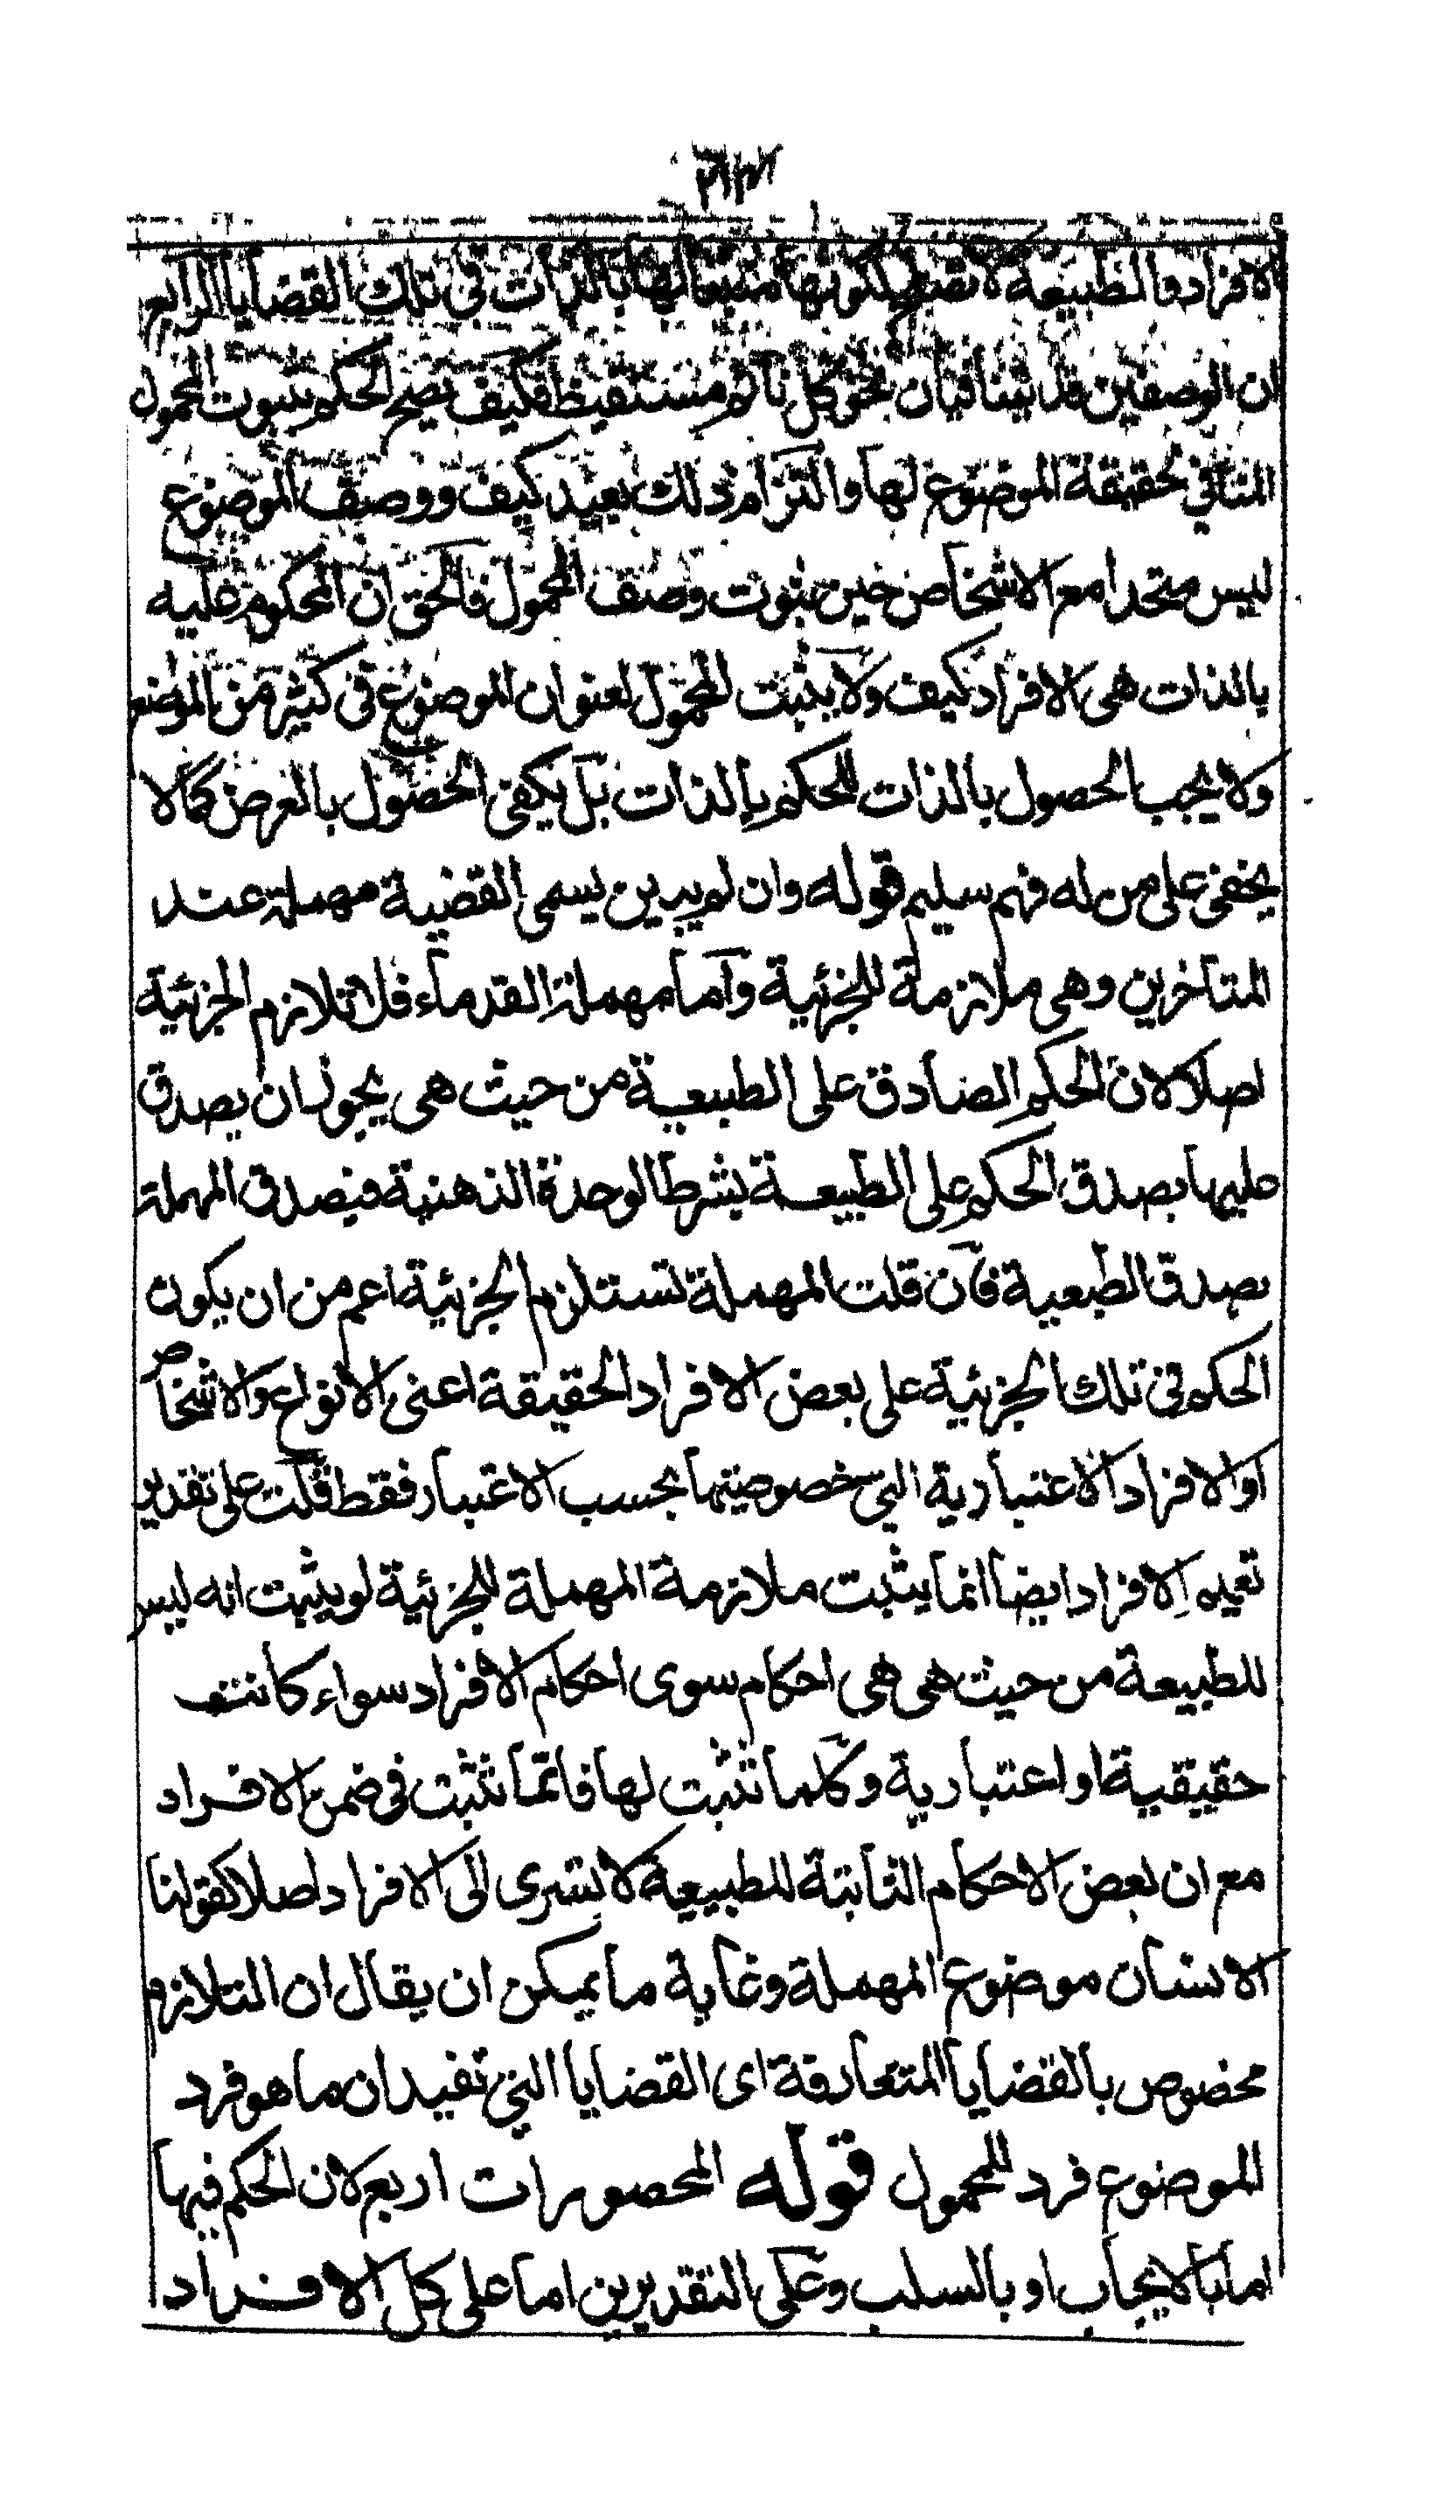 الافراد والطبيعة لا تصلح لكونها مثبتا لها بالذات فى تلك القضايا الرابع
ان الوصفين قد يتنافيان نحو كل نائم مستيقظ فكيف يصح الحكم بثبوت المحمول
المنافي لحقيقة الموضوع لها والتزام ذلك بعيد كيف ووصف الموضوع
ليس متحدا مع الاشخاص حين ثبوت وصف المحمول فالحق ان المحكوم عليه
بالذات هى الافراد كيف ولا يثبت المحمول لعنوان الموضوع فى كثير من المواضع
ولا يجب الحصول بالذات للحكم بالذات بل يكفى الحصول بالعرض كما لا
يخفى على من له فهم سليم قوله وان لم يبين يسمى القضية مهملة عند
المتاخرين وهى ملازمة للجزئية وآما مهملة القدماء فلا تلازم الجزئية
اصلا لان الحكم الصادق على الطبيعة من حيث هى يجوز ان يصدق
عليها بصدق الحكم على الطبيعة بشرط الوحدة الذهنية فيصدق المهملة
بصدق الطبعية فآن قلت المهملة تستلزم الجزئية اعم من ان يكون
الحكم فى تلك الجزئية على بعض الافراد الحقيقة اعنى الانواع والاشخاص
او الافراد الاعتبارية التى خصوصيتها بحسب الاعتبار فقط قلت على تقدير
تعميم الافراد ايضا انما يثبت ملازمة المهملة للجزئية لو يثبت انه ليس
للطبيعة من حيث هى هى احكام سوى احكام الافراد سواء كانت
حقيقية او اعتبارية وكلما تثبت لها فانما تثبت فى ضمن الافراد
مع ان بعض الاحكام الثابتة للطبيعة لا تسرى الى الافراد اصلا كقولنا
الانسان موضوع المهملة وغاية ما يمكن ان يقال ان التلازم
مخصوص بالقضايا المتعارفة اى القضايا التى تفيد ان ما هو فرد
الموضوع فرد للمحمول قوله المحصورات اربع لان الحكم فيها
اما بالايجاب او بالسلب وعلى التقديرين اما على كل الافراد